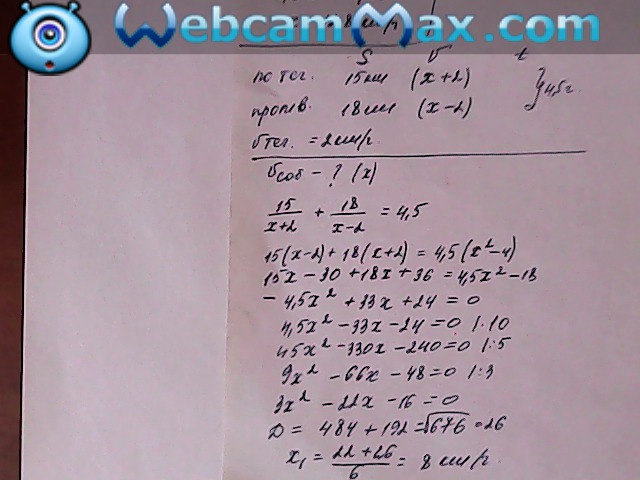 WebcamMax.com
8 км/г.
S V t
по теч. 15км (x+2)
против. 18км (x-2) } 4,5г.
Vтеч. = 2км/г.
Vсоб - ? (x)
15/(x+2) + 18/(x-2) = 4,5
15(x-2)+18(x+2) = 4,5(x²-4)
15x - 30 + 18x + 36 = 4,5x² - 18
- 4,5x² + 33x + 24 = 0
4,5x² - 33x - 24 = 0 |·10
45x² - 330x - 240 = 0 |:5
9x² - 66x - 48 = 0 |:3
3x² - 22x - 16 = 0
D = 484 + 192 = √676 = 26
x₁ = (22 + 26)/6 = 8 км/г.